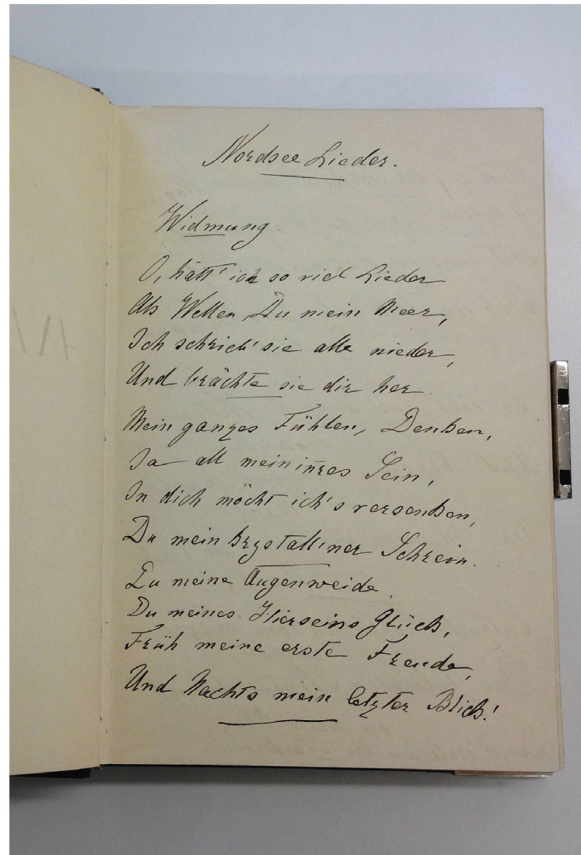 Nordsee Lieder.
Widmung
O, hätt' ich so viel Lieder
Als Wellen Du mein Meer,
Ich schrieb' sie alle nieder,
Und brächte sie dir her.
Mein ganzes Fühlen, Denken,
Ja all mein iñres Sein,
In dich möcht ich's versenken,
Du mein krystall'ner Schrein.
Du meine Augenweide,
Du meines Hierseins Glück,
Früh meine erste Freude,
Und Nachts mein letzter Blick!